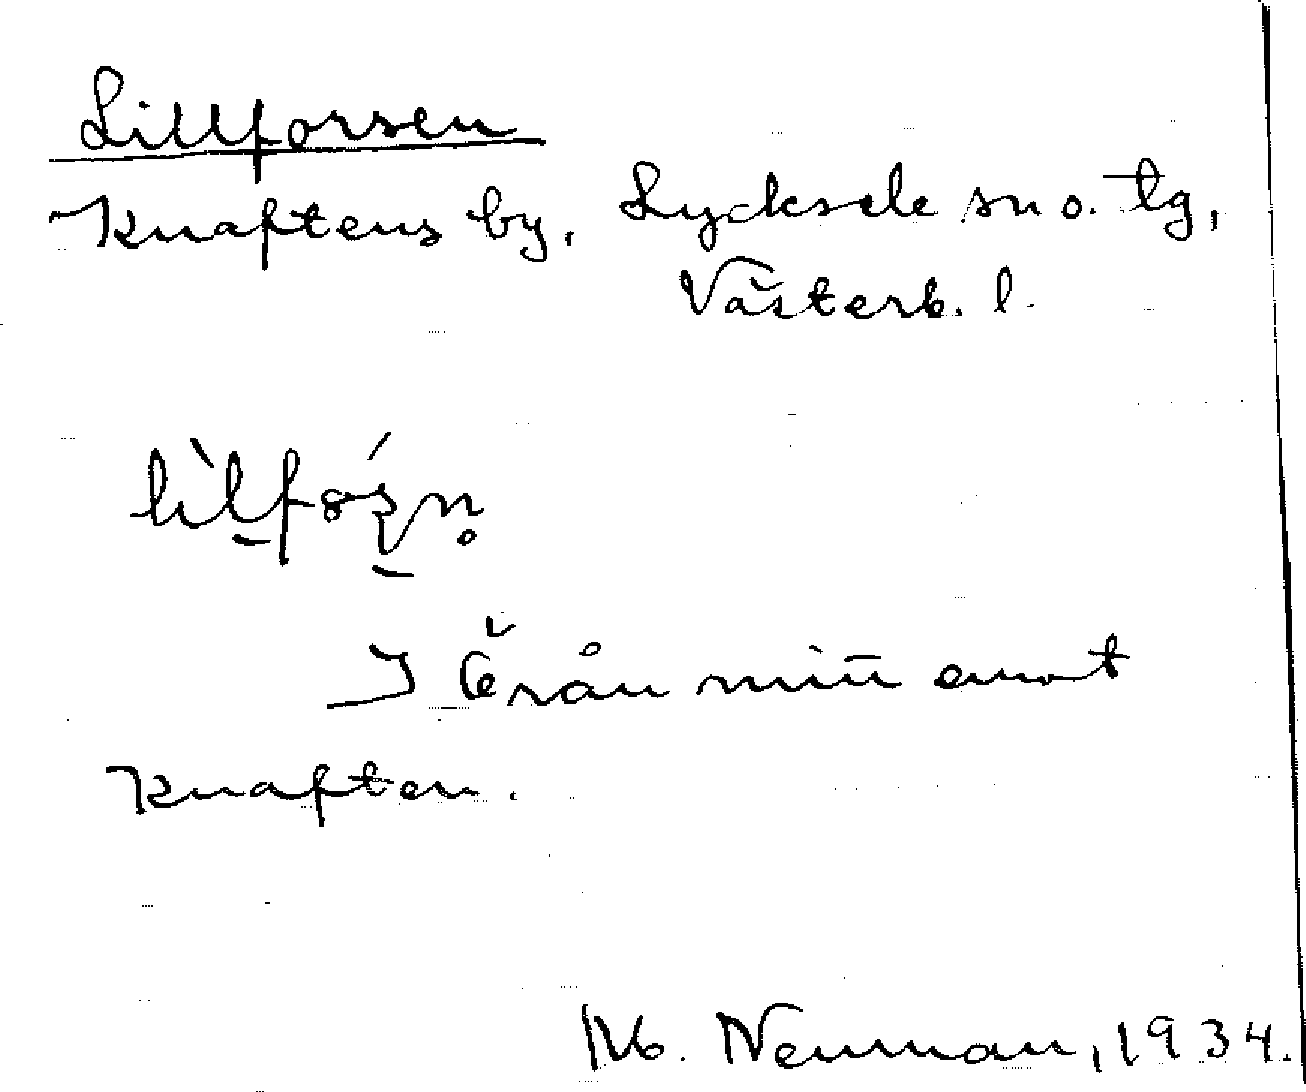 Lillforsen
Knaftens by, Lycksele sn o. tg,
Västerb. l.
I Öreån mitt emot
Knaften.
Neuman, 1934.